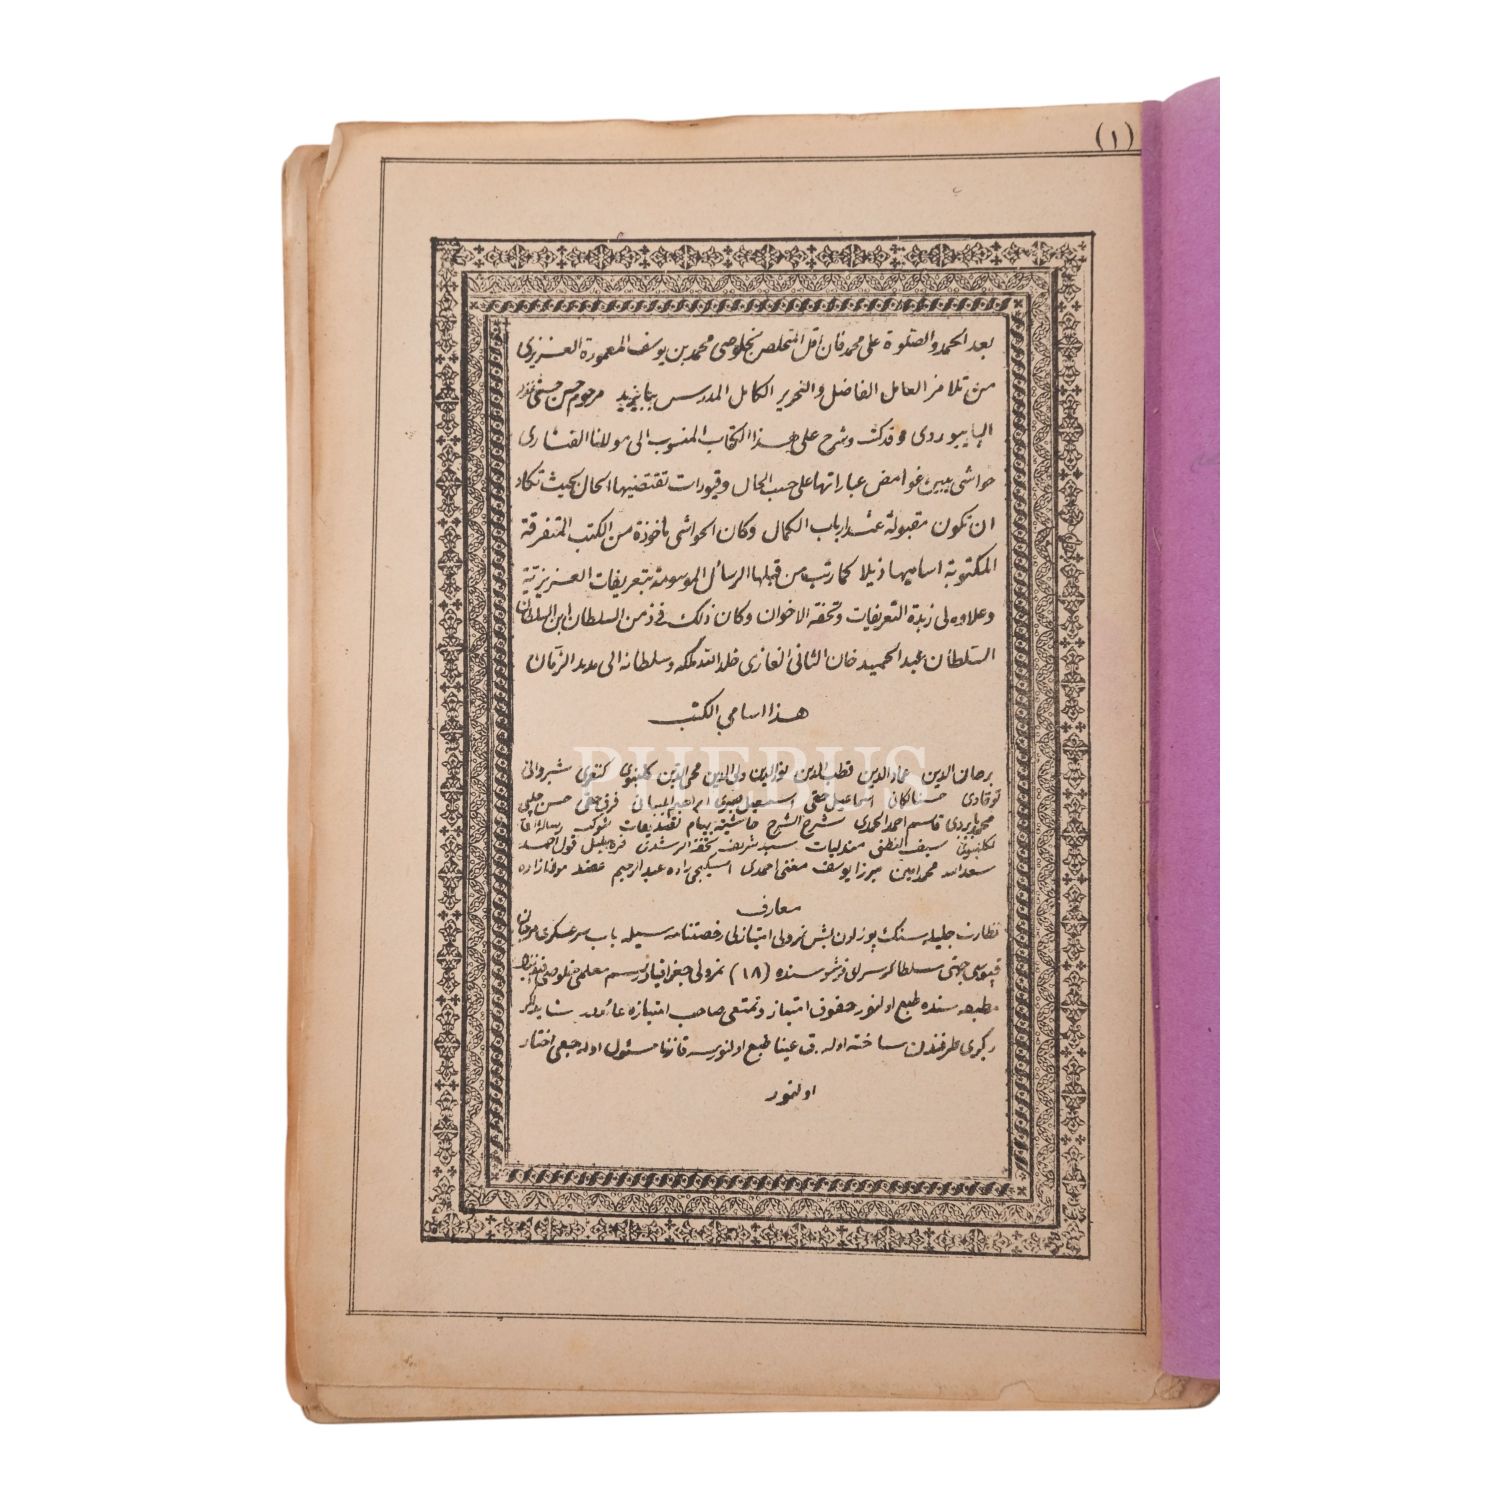 (١)
بعد الحمد والصلوة على محمد فان اقل المتخلص بخلوصى محمد بن يوسف المعمورة العزيزى
من تلامز العامل الفاضل والنحرير الكامل المدرس ببايزيد مرحوم حسن حسنى
البايبوردى وقد كنت وشرح على هذا الكتاب المنسوب الى مولانا الفنارى
حواشى يبين غوامض عباراتها على حسب الحال وقيودات تقتضيها الحال بحيث تكاد
ان تكون مقبولة عند ارباب الكمال وكان الحواشى مأخوذة من الكتب المتفرقة
المكتوبة اساميها ذيلا كما رتب من قبلها الرسائل الموسومة بتعريفات العزيزية
وعلاوه لى زبدة التعريفات وتحفة الاخوان وكان ذلك فى زمن السلطان ابن السلطان
السلطان عبد الحميد خان الثانى الغازى خلد الله ملكه وسلطانه الى مدد الزمان
هذا اسامى الكتب
برهان الدين عماد الدين قطب الدين نور الدين ولى الدين محى الدين كلنبوى كفوى شروانى
توقادى حسنكاتى اسماعيل حقى اسمعيل ابراهيم حسن چلبى
محمد قاسم احمد شرح الشرح حاشية شوكت رساله
سيف سيد شريف تحفة الرشدى قره خليل قول احمد
سعد الله محمد امين ميرزا يوسف مغنى احمدى اسپيجى زاده عبد الرحيم عضد مولانازاده
معارف
نظارت جليله سنك يوز اون بش نمرولى امتيازلى رخصتنامه سيله باب سرعسكرى
قپوسى جهتى سلطان سراى سنده (١٨) نمرولى جغرافيا و رسم معلمى خلوصى
مطبعه سنده طبع اولنور حقوق امتياز و تمتعى صاحب امتيازه عائددر شايد
ديكرى طرفندن ساخته اوله رق عينا طبع اولنورسه قانونا مسئول اوله جغى اخطار
اولنور
PHEBUS